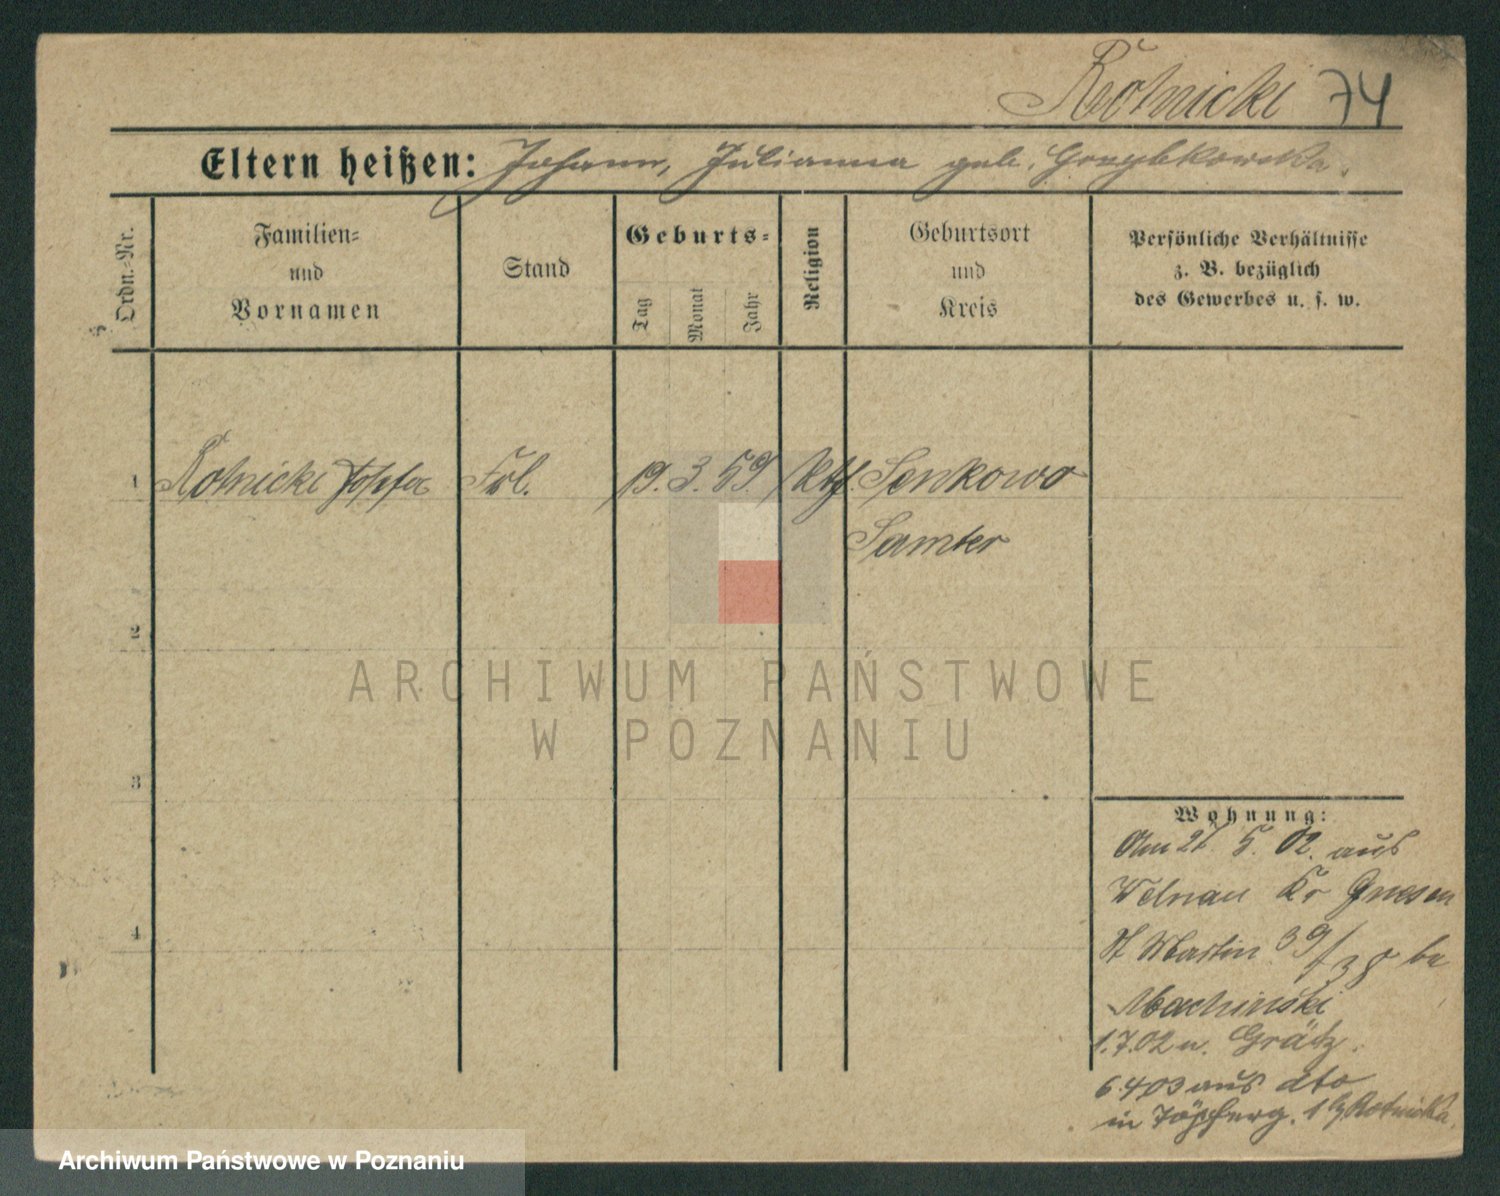 Rotnicki 74
Eltern heißen: Johann, Julianna geb. Grzybkowska.
Ordn.-Nr.
Familien-
und
Vornamen
Stand
Geburts-
Tag
Monat
Jahr
Religion
Geburtsort
und
Kreis
Persönliche Verhältnisse
z. B. bezüglich
des Gewerbes u. s. w.
1 Rotnicki Josefa Frl. 19. 3. 59 kth. Senkowo
Samter
2
3
4
ARCHIWUM PAŃSTWOWE
W POZNANIU
Wohnung:
Am 21 5. 02. aus
Welnau Kr Gnesen
St Martin 39/38 be
Machinski
1.7.02 n. Grätz.
6.4.03 aus dto
in Töpferg. 1 Rotnicka.
Archiwum Państwowe w Poznaniu